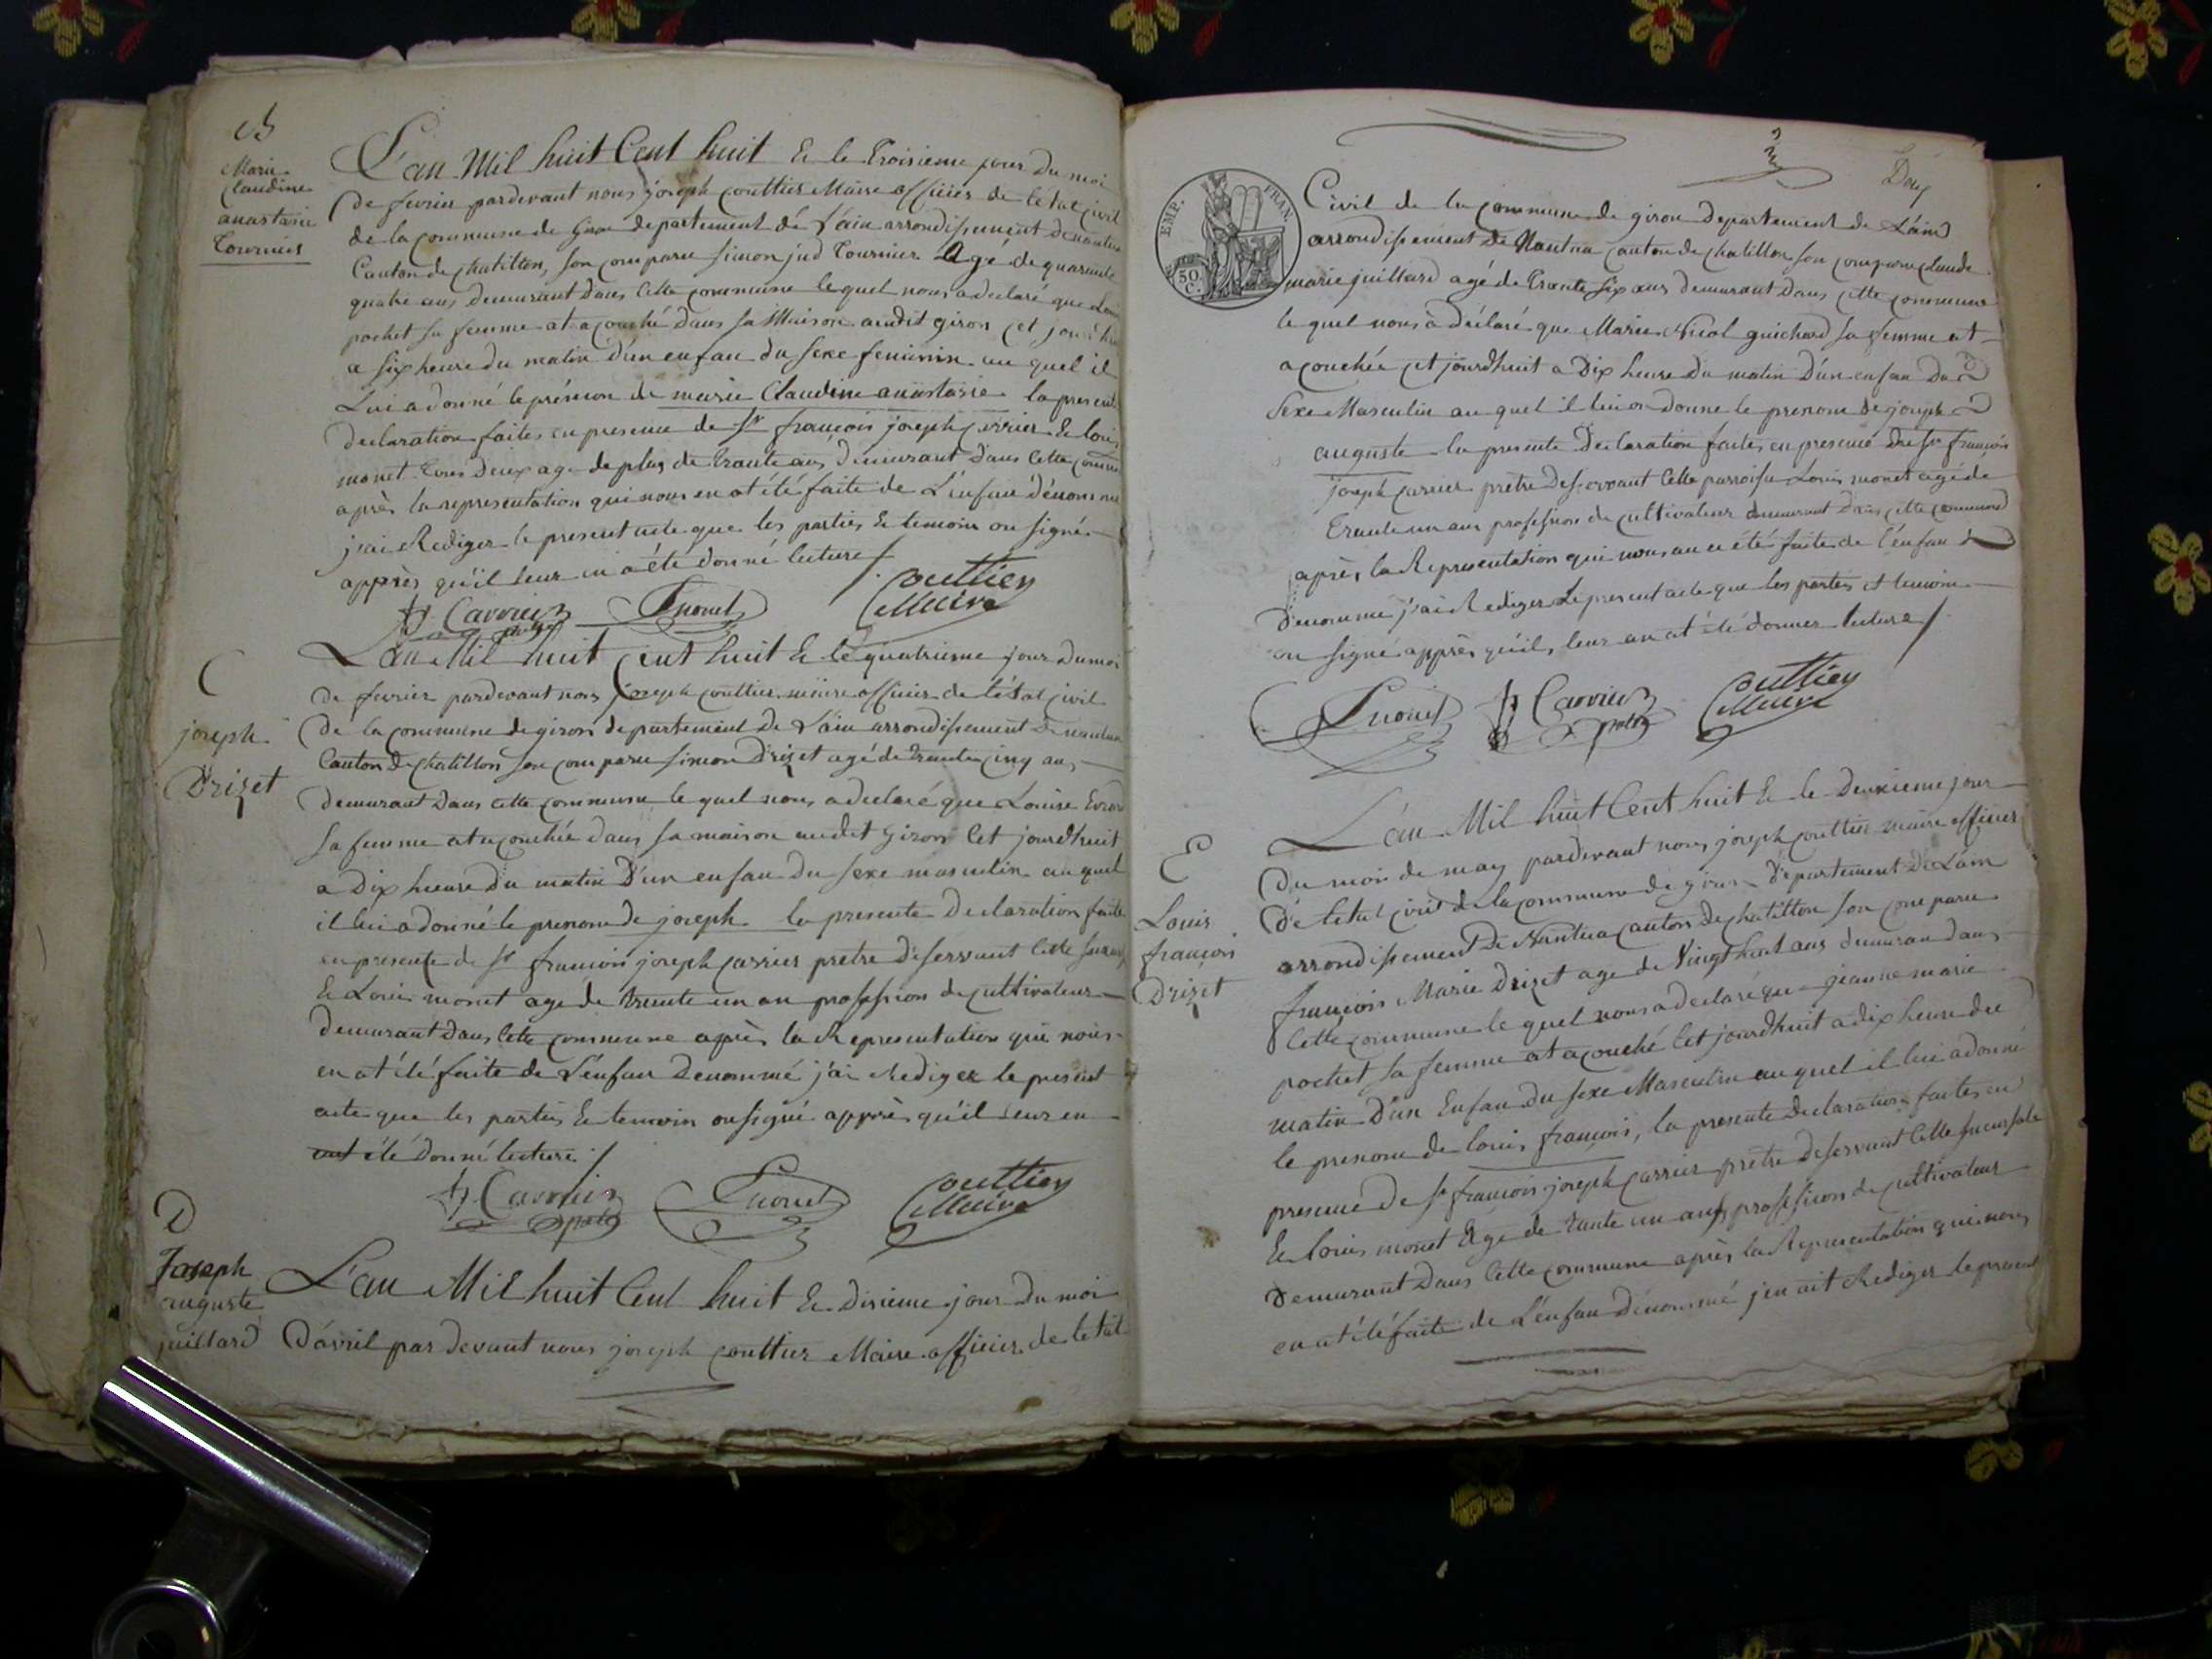 B
Marie
Claudine
anastasie
Tournier
L'an Mil huit Cent huit & le Troisieme jour du moi
de fevrier pardevant nous joseph couttier Maire officier de letat civil
de la commune de giron departement de l'ain arrondissement de nantua
Canton de chatillon, son comparu simon jud Tournier Agé de quarante
quatre ans demurant dans cette commune lequel nous a declaré que
pochet sa femme at acouché dans sa Maison audit giron cet jourd'hui
a six heure du matin d'un enfan du sexe feminin au quel il
Lui a donné le prénom de marie Claudine anastasie la presente
declaration faites en presence de Sr françois joseph carrier & louis
monet tous deux age de plus de trante ans demurant dans cette commune
après la representation qui nous en at été faite de L'enfan dénommé
j'ai Rediger le present acte que les parties & temoin on signé
apprès qu'il leur en a été donné lecture /.
fj Carrier ptre Lmonet Couttier Maire
C
joseph
Drizet
L'an Mil huit Cent huit & le quatrieme jour du moi
de fevrier pardevant nous joseph couttier maire officier de létat civil
De la commune de giron departement De L'ain arrondissement De nantua
Canton De chatillon son comparu simon Drizet agé de trante cinq ans
demurant Dans cette commune le quel nous a declaré que Louise
sa femme at acouchée dans sa maison audit Giron Cet jourdhuit
a Dix heure du matin D'un enfan Du sexe masculin au quel
il lui a donné le prenom de joseph la presente Declaration faite
en presence de Sr françois joseph carrier pretre Deservant Cette
& Louis monet age de trente un an profession de cultivateur
demurant Dans Cette commune après la Representation qui nous
en at été faite de L'enfan Denommé j'ai Rediger le present
acte que les parties & temoin on signé apprès qu'il leur en
ant été Donné lecture /
fj Carrier ptre Lmonet Couttier Maire
D
Joseph
auguste
juillard
L'an Mil huit Cent huit & Dixieme jour Du moi
D'avril par Devant nous joseph couttier Maire officier de letat
EMP. FRAN.
50 C.
Civil de la commune de giron departement de L'ain
arrondissement de Nantua canton de chatillon son comparu claude
marie juillard agé de trante six ans demurant Dans cette commune
le quel nous à déclaré que Marie Nicol guichard sa femme at
acouchée cet jourdhuit a Dix heure du matin D'un enfan Du
Sexe Masculin au quel il lui a donné le prenom de joseph
auguste la presente Déclaration faites en presence du Sr françois
joseph carrier pretre Deservant Cette parroisse Louis monet agé de
trante un ans profession de cultivateur demurant Dans cette commune
après la Representation qui nous an a été faite de l'enfan
D'enommé j'ai Rediger Le present acte que les parties et temoin
on signé apprès qu'il, leur an at été donner lecture /.
Lmonet fj Carrier ptre Couttier Maire
E
Louis
françois
Drizet
L'an Mil huit Cent huit & le Deuxieme jour
Du moi de may pardevant nous joseph couttier maire officier
De letat civil de la commune de giron Departement De L'ain
arrondissement De Nantua canton de chatillon son comparu
françois Marie Drizet age de Vingt huit ans demuran dans
Cette commune le quel nous a declaré que jeanne marie
pochet sa femme at acouché Cet jourdhuit a dix heure du
matin D'un Enfan Du sexe Masculin au quel il lui a donné
le prenom de louis françois, la presente Declaration faites en
presence De Sr françois joseph carrier pretre Deservant Cette sucursale
& louis monet Agé de trante un ans profession de cultivateur
Demurant Dans Cette commune après la Representation qui nous
en at été faite de L'enfan Dénommé j'en ait Rediger le present